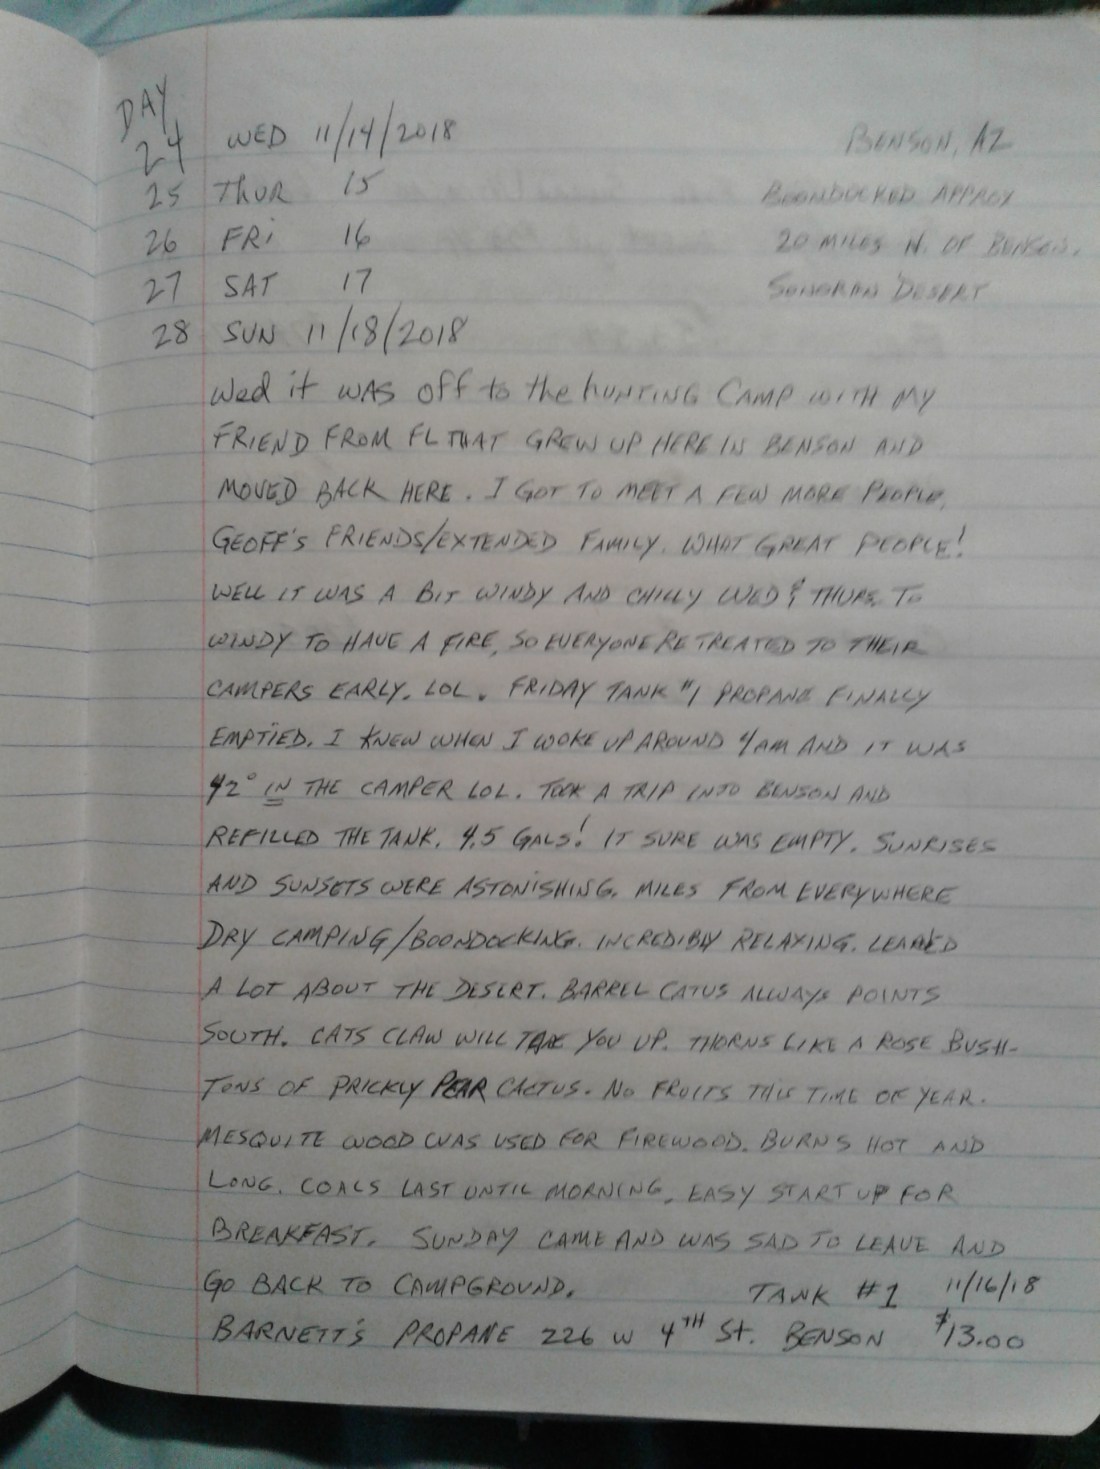 DAY
24 WED 11/14/2018 BENSON, AZ
25 THUR 15 BOONDOCKED APPROX
26 FRI 16 20 MILES N. OF BENSON.
27 SAT 17 SONORAN DESERT
28 SUN 11/18/2018
Wed it WAS off to the HUNTING CAMP WITH MY
FRIEND FROM FL THAT GREW UP HERE IN BENSON AND
MOVED BACK HERE. I GOT TO MEET A FEW MORE PEOPLE,
GEOFF'S FRIENDS/EXTENDED FAMILY. WHAT GREAT PEOPLE!
WELL IT WAS A BIT WINDY AND CHILLY WED & THURS. TO
WINDY TO HAVE A FIRE, SO EVERYONE RETREATED TO THEIR
CAMPERS EARLY. LOL. FRIDAY TANK #1 PROPANE FINALLY
EMPTIED. I KNEW WHEN I WOKE UP AROUND 4AM AND IT WAS
42° IN THE CAMPER LOL. TOOK A TRIP INTO BENSON AND
REFILLED THE TANK. 4.5 GALS! IT SURE WAS EMPTY. SUNRISES
AND SUNSETS WERE ASTONISHING. MILES FROM EVERYWHERE
DRY CAMPING/BOONDOCKING. INCREDIBLY RELAXING. LEARNED
A LOT ABOUT THE DESERT. BARREL CATUS ALWAYS POINTS
SOUTH. CATS CLAW WILL TEAR YOU UP. THORNS LIKE A ROSE BUSH-
TONS OF PRICKLY PEAR CACTUS. NO FRUITS THIS TIME OF YEAR.
MESQUITE WOOD WAS USED FOR FIREWOOD. BURNS HOT AND
LONG. COALS LAST UNTIL MORNING, EASY START UP FOR
BREAKFAST. SUNDAY CAME AND WAS SAD TO LEAVE AND
GO BACK TO CAMPGROUND. TANK #1 11/16/18
BARNETT'S PROPANE 226 W 4TH St. BENSON $13.00